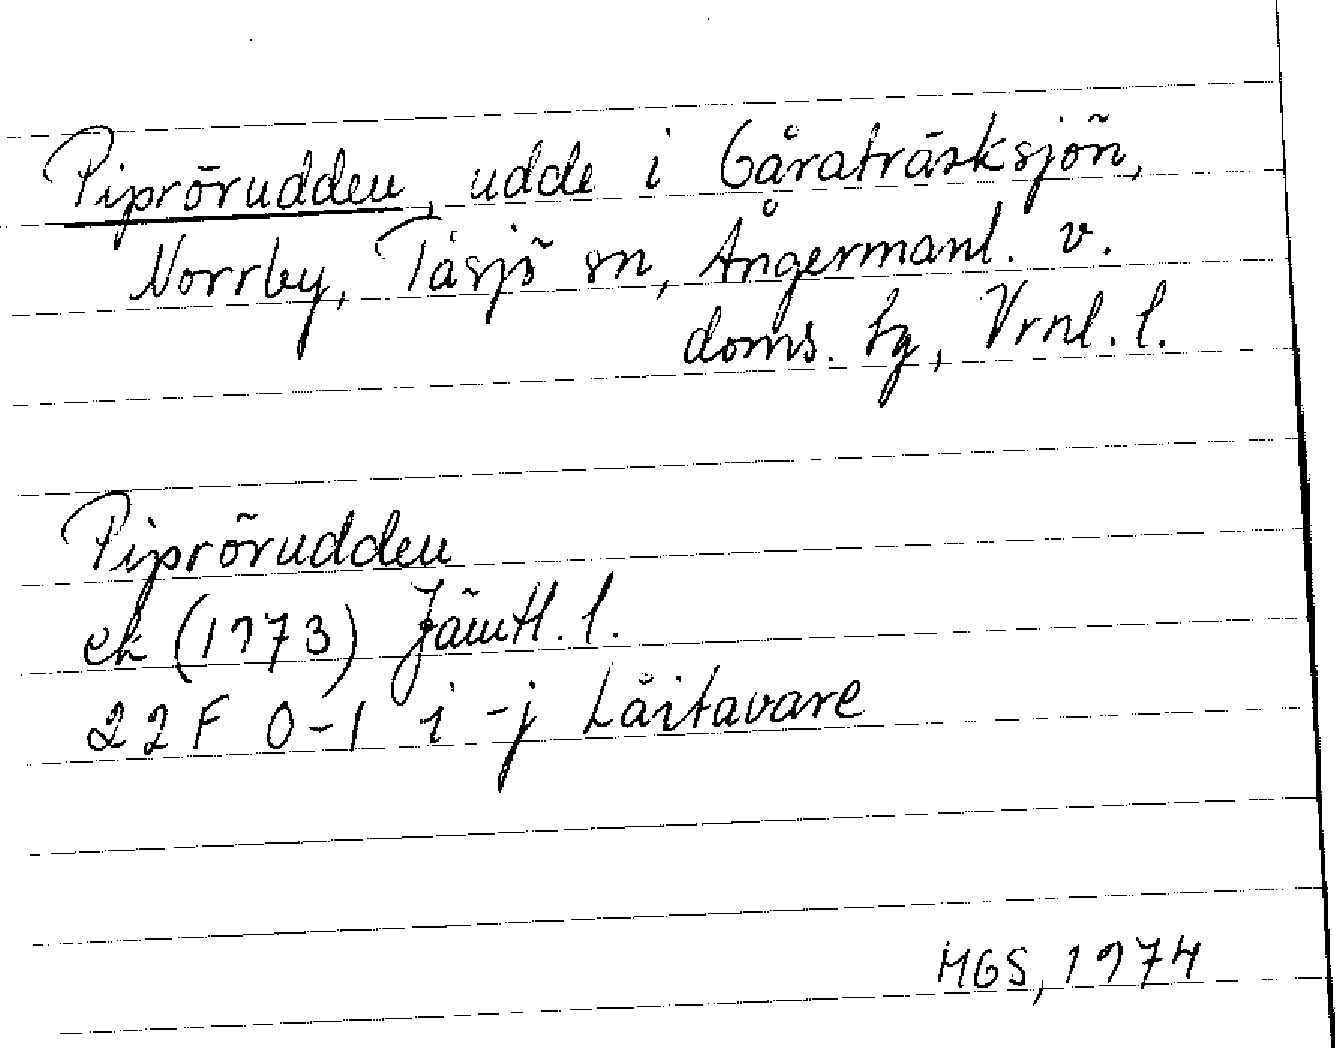 Piprörudden, udde i Gåraträsksjön,
Norrby, Tåsjö sn, Ångermanl. v.
doms. hg, Vrnl. l.
Piprörudden
ek (1973) Jämtl. l.
22 F 0-1 i-j Låitavare
MGS, 1974